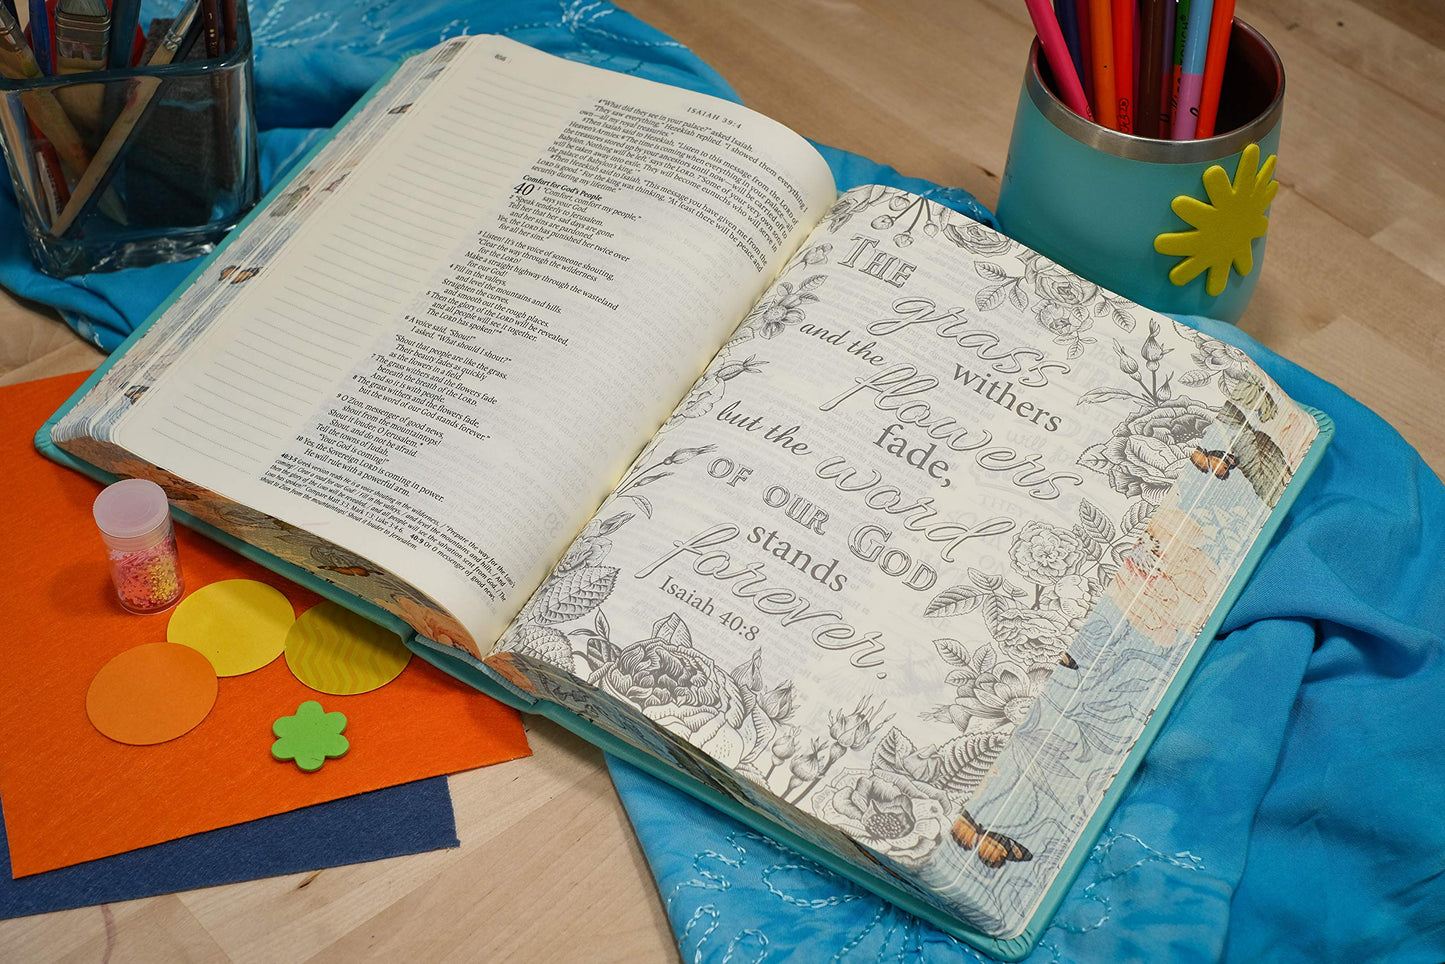 ISAIAH 39:4
4 "What did they see in your palace?" asked Isaiah.
"They saw everything," Hezekiah replied. "I showed them everything I
own—all my royal treasuries."
5 Then Isaiah said to Hezekiah, "Listen to this message from the LORD of
Heaven's Armies: 6 'The time is coming when everything in your palace—all
the treasures stored up by your ancestors until now—will be carried off to
Babylon. Nothing will be left,' says the LORD. 7 'Some of your very own sons
will be taken away into exile. They will become eunuchs who will serve in
the palace of Babylon's king.'"
8 Then Hezekiah said to Isaiah, "This message you have given me from the
LORD is good." For the king was thinking, "At least there will be peace and
security during my lifetime."
Comfort for God's People
40 1 "Comfort, comfort my people,"
says your God.
2 "Speak tenderly to Jerusalem.
Tell her that her sad days are gone
and her sins are pardoned.
Yes, the LORD has punished her twice over
for all her sins."
3 Listen! It's the voice of someone shouting,
"Clear the way through the wilderness
for the LORD!
Make a straight highway through the wasteland
for our God!
4 Fill in the valleys,
and level the mountains and hills.
Straighten the curves,
and smooth out the rough places.
5 Then the glory of the LORD will be revealed,
and all people will see it together.
The LORD has spoken!"*
6 A voice said, "Shout!"
I asked, "What should I shout?"
"Shout that people are like the grass.
Their beauty fades as quickly
as the flowers in a field.
7 The grass withers and the flowers fade
beneath the breath of the LORD.
And so it is with people.
8 The grass withers and the flowers fade,
but the word of our God stands forever."
9 O Zion, messenger of good news,
shout from the mountaintops!
Shout it louder, O Jerusalem.*
Shout, and do not be afraid.
Tell the towns of Judah,
"Your God is coming!"
10 Yes, the Sovereign LORD is coming in power.
He will rule with a powerful arm.
THE
grass
withers
and the
flowers
fade,
but the word
OF OUR GOD
stands
forever.
Isaiah 40:8